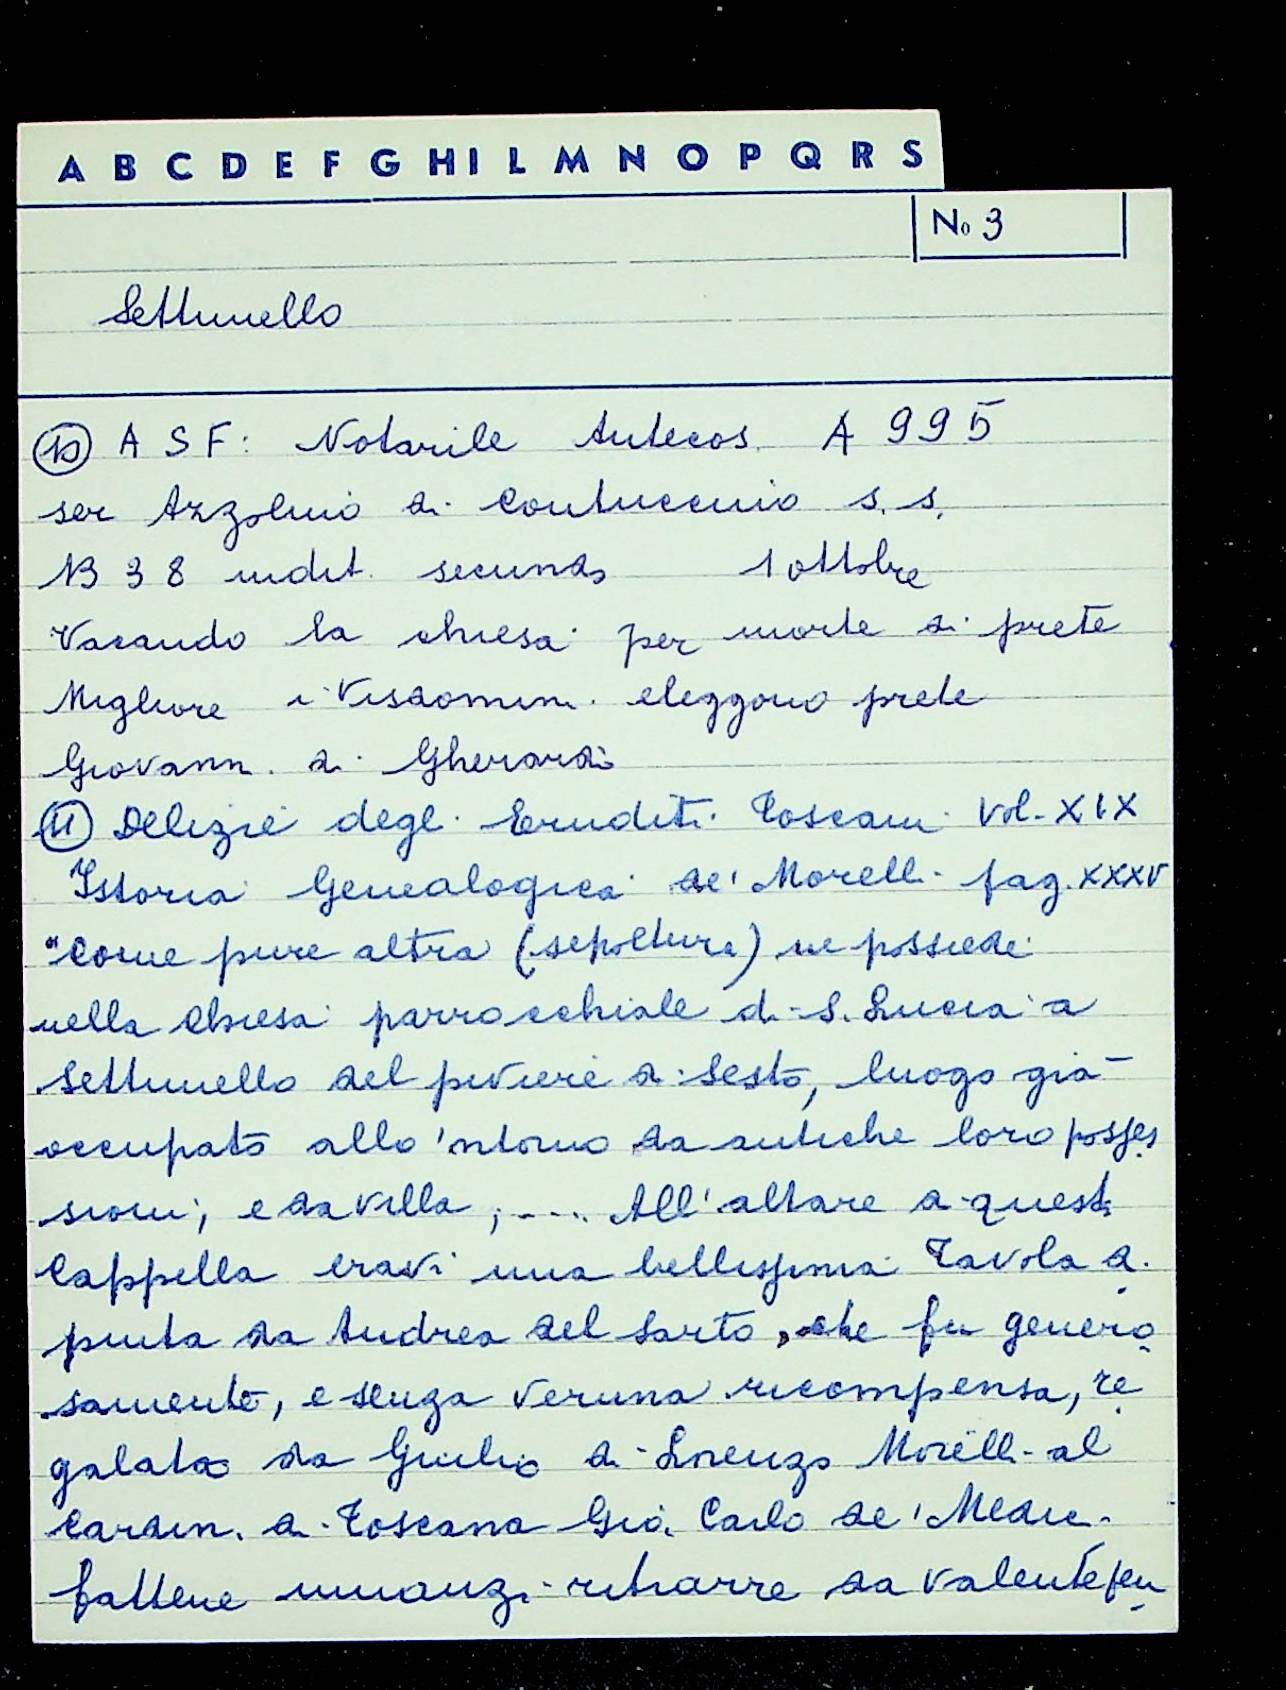 A B C D E F G H I L M N O P Q R S
No 3
Settimello
10 A S F: Notarile Antecos. A 995
ser Azzolino di Contuccino s. s.
1338 indit. secunda 1 ottobre
Vacando la chiesa per morte di prete
Migliore i Visdomini eleggono prete
Giovanni di Gherardo
11 Delizie degli Eruditi Toscani Vol. XIX
Istoria Genealogica de' Morelli pag. XXXV
"Come pure altra (sepoltura) ne possiede
nella Chiesa parrocchiale di S. Lucia a
Settimello del piviere di Sesto, luogo già
occupato allo 'ntorno da antiche loro posses
sioni, e da villa, .... All'altare di questa
Cappella eravi una bellissima Tavola di
pinta da Andrea del Sarto, che fu genero
samente, e senza veruna ricompensa, re
galata da Giulio di Lorenzo Morelli al
Cardin. di Toscana Gio. Carlo de' Medici
fattene innanzi ritrarre da valente pen